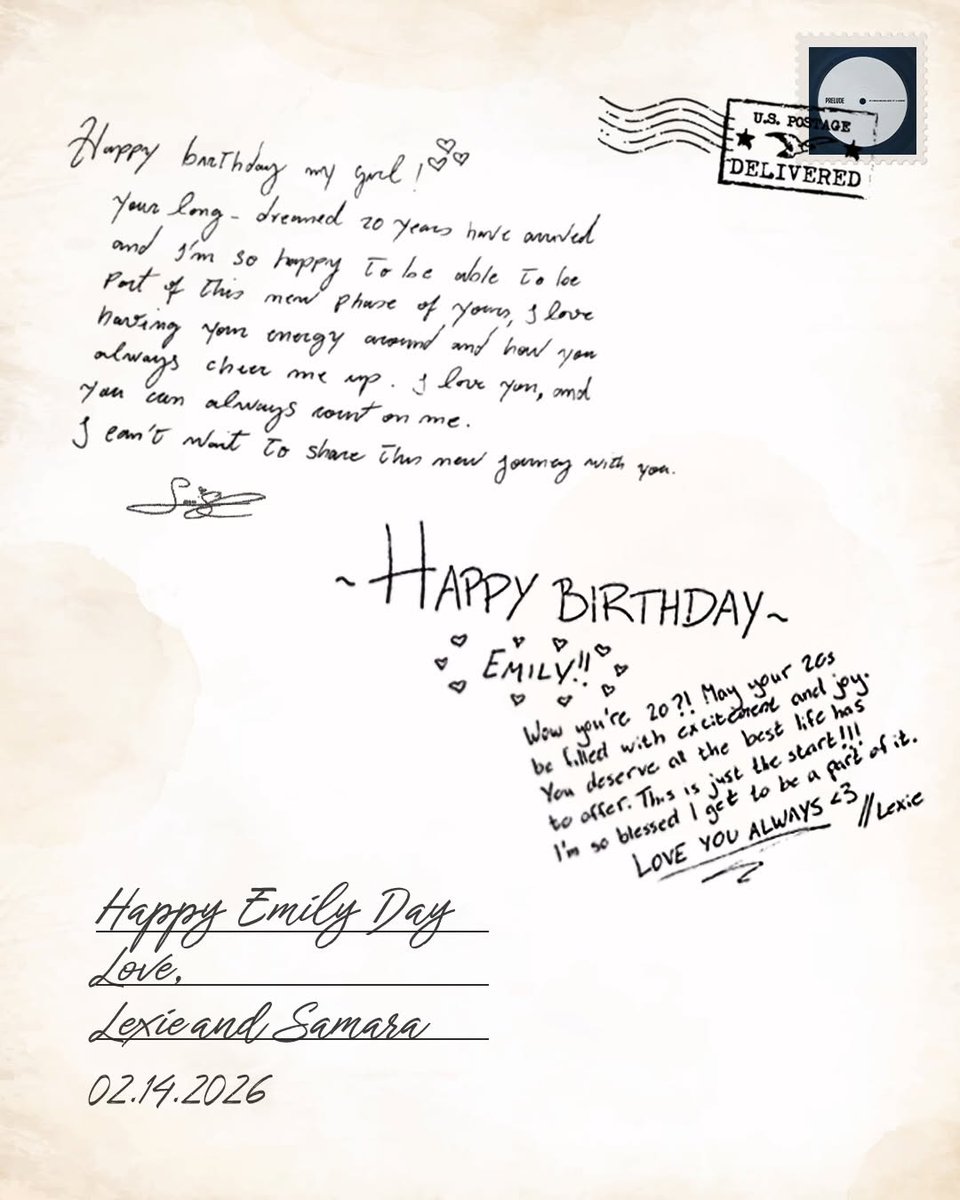 PRELUDE
U.S. POSTAGE
DELIVERED
Happy birthday my girl!
Your long-dreamed 20 years have arrived
and I'm so happy to be able to be
part of this new phase of yours, I love
having your energy around and how you
always cheer me up. I love you, and
you can always count on me.
I can't wait to share this new journey with you.
~HAPPY BIRTHDAY~
EMILY!!
Wow you're 20?! May your 20s
be filled with excitement and joy.
You deserve all the best life has
to offer. This is just the start!!!
I'm so blessed I get to be a part of it.
LOVE YOU ALWAYS <3 //Lexie
Happy Emily Day
Love,
Lexie and Samara
02.14.2026